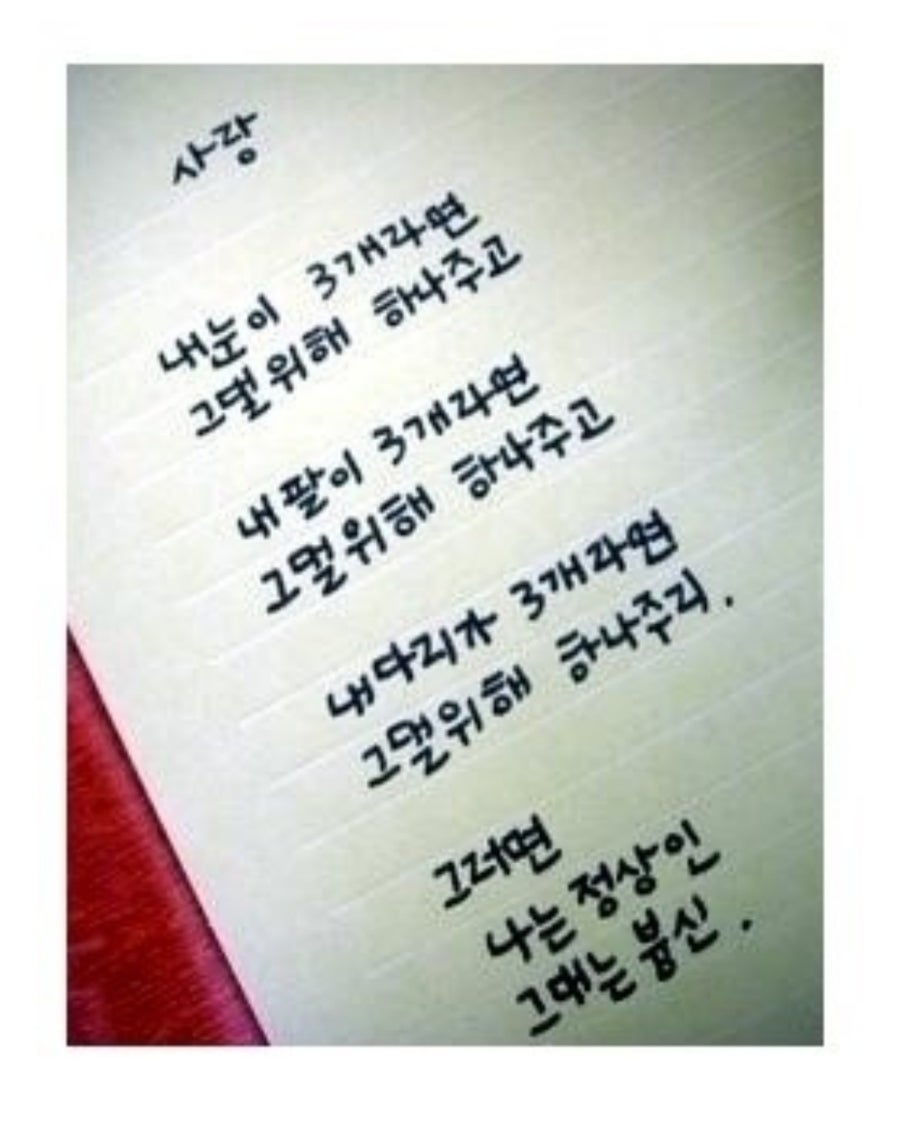 사랑
내눈이 3개라면
그댈위해 하나주고
내팔이 3개라면
그댈위해 하나주고
내다리가 3개라면
그댈위해 하나주리.
그러면
나는 정상인
그대는 븅신.